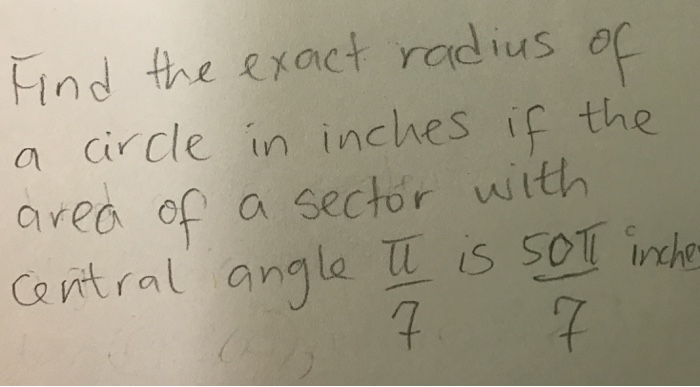 Find the exact radius of
a circle in inches if the
area of a sector with
central angle π/7 is 50π/7 inche